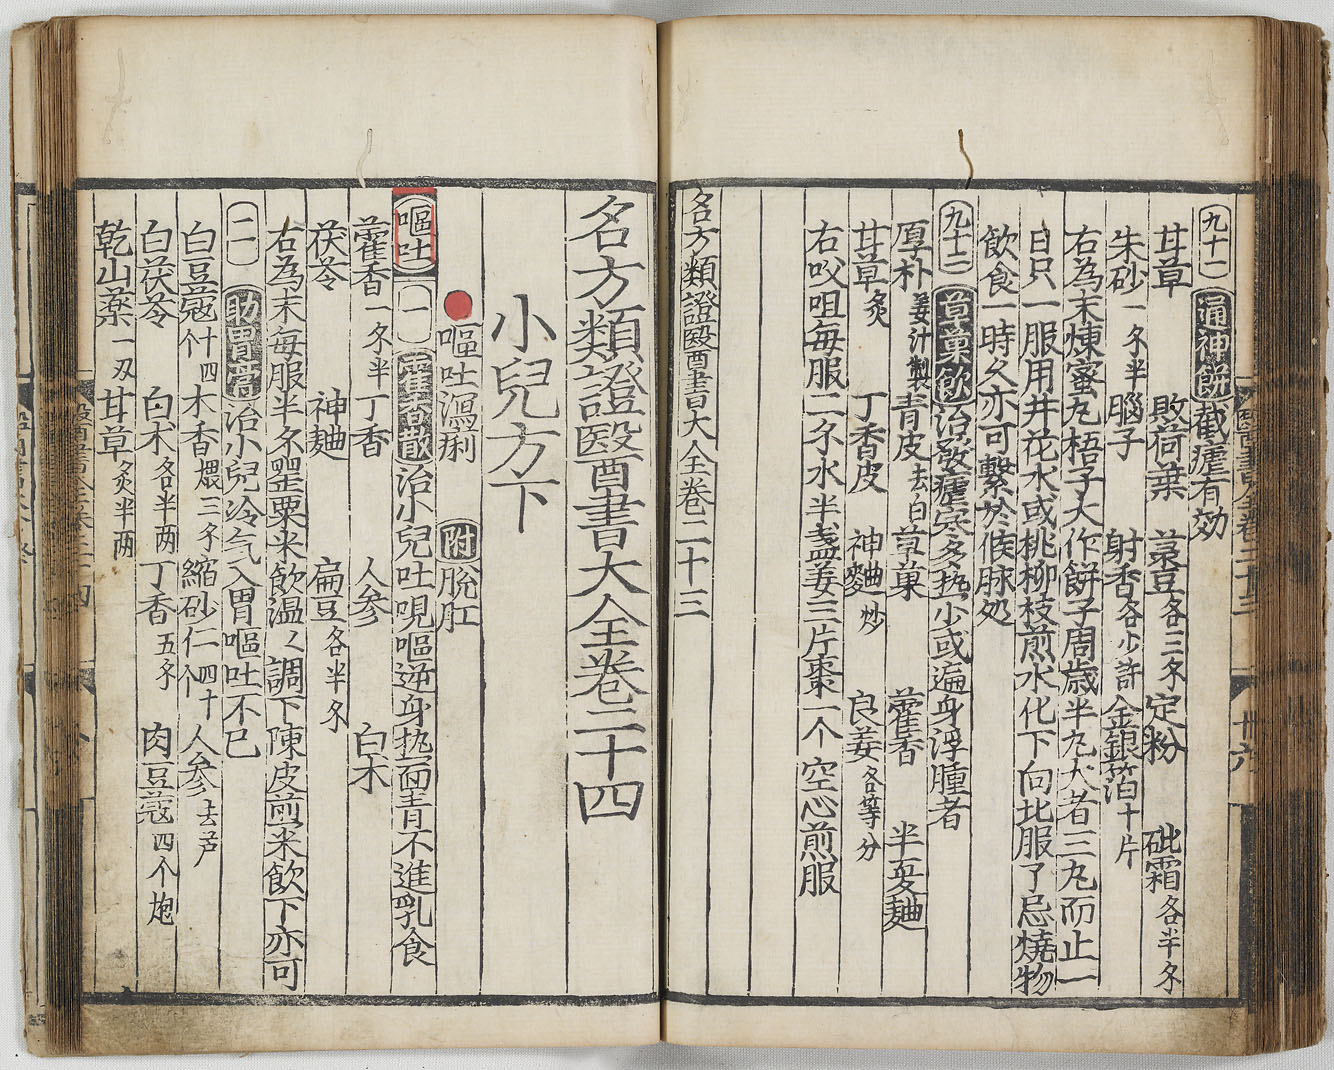 九十一 通神餅 截瘧有効
甘草 敗荷葉 菉豆各三条 定粉 砒霜各半条
朱砂一条半 腦子 射香各少許 金銀箔十片
右為末煉蜜丸梧子大作餅子周歲半丸大者三丸而止一
日只一服用井花水或桃柳枝煎水化下向北服了忌燒物
飲食一時久亦可繫於候脉処
九十二 草菓飲 治發瘧寒多热少或遍身浮腫者
厚朴姜汁製 青皮去白 草菓 藿香 半夏麯
甘草炙 丁香皮 神麯炒 良姜各等分
右㕮咀每服二条水半盞姜三片棗一个空心煎服
名方類證醫書大全卷二十三
名方類證醫書大全卷二十四
小兒方下
嘔吐瀉痢 附 脫肛
嘔吐 一 藿香散 治小兒吐哯嘔逆身热面青不進乳食
藿香一条半 丁香 人參 白术
茯苓 神麯 扁豆各半条
右為末每服半条罌粟米飲温〻調下陳皮煎米飲下亦可
二 助胃膏 治小兒冷气入胃嘔吐不已
白豆蔻十四个 木香煨三条 縮砂仁四十个 人參去芦
白茯苓 白术各半两 丁香五条 肉豆蔻四个炮
乾山薬一两 甘草炙半两